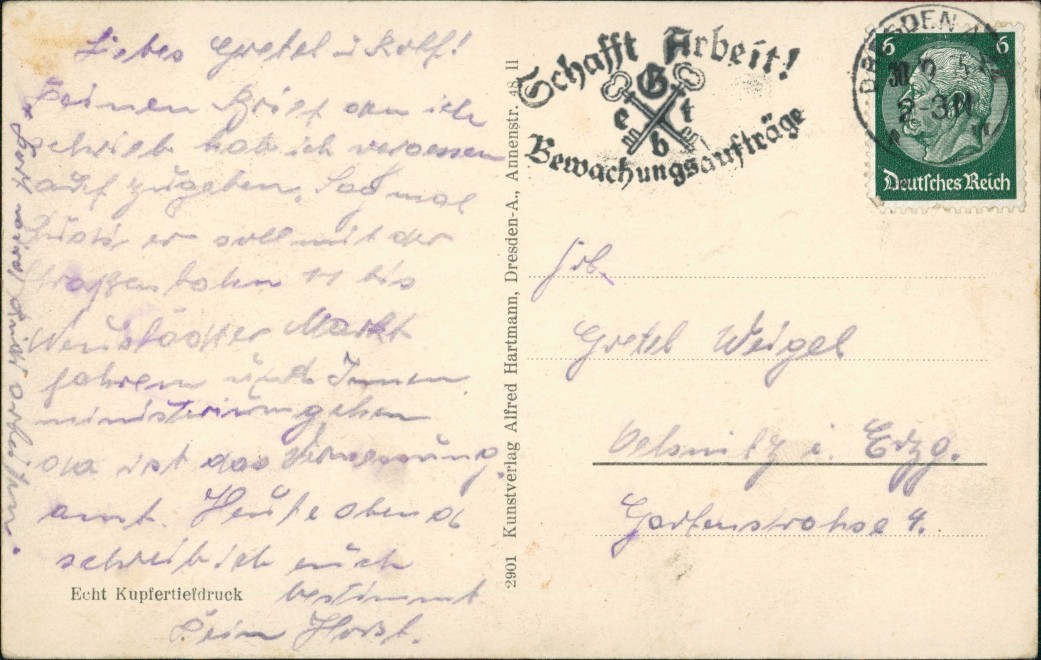 Liebes Gretel u Rolf!
Deinen Brief den ich
schrieb hab ich vergessen
auf zugeben. Sag mal
er soll mit der
Straßenbahn 11 bis
Neustädter Markt
fahren u Innen
ministerium gehen
da ist das Vermessungs
amt. Heute abend
schreib ich euch
bestimmt
Dein Horst.
Echt Kupfertiefdruck
2901 Kunstverlag Alfred Hartmann, Dresden-A., Annenstr. 48 II
Schafft Arbeit!
G e t b
Bewachungsaufträge
DRESDEN
Deutsches Reich
6 6
Frl.
Gretel Weigel
Oelsnitz i. Erzg.
Gartenstrahse 4.